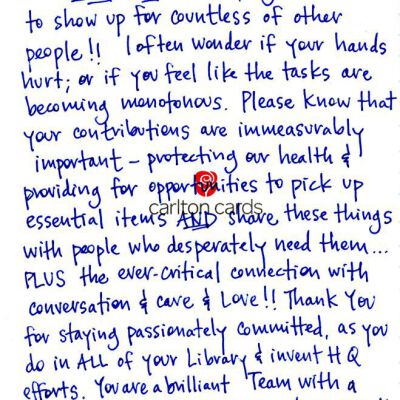 to show up for countless of other
people!! I often wonder if your hands
hurt; or if you feel like the tasks are
becoming monotonous. Please know that
your contributions are immeasurably
important – protecting our health &
providing for opportunities to pick up
carlton cards
essential items AND share these things
with people who desperately need them...
PLUS the ever-critical connection with
conversation & care & Love!! Thank You
for staying passionately committed, as you
do in ALL of your Library & invent HQ
efforts. You are a brilliant Team with a